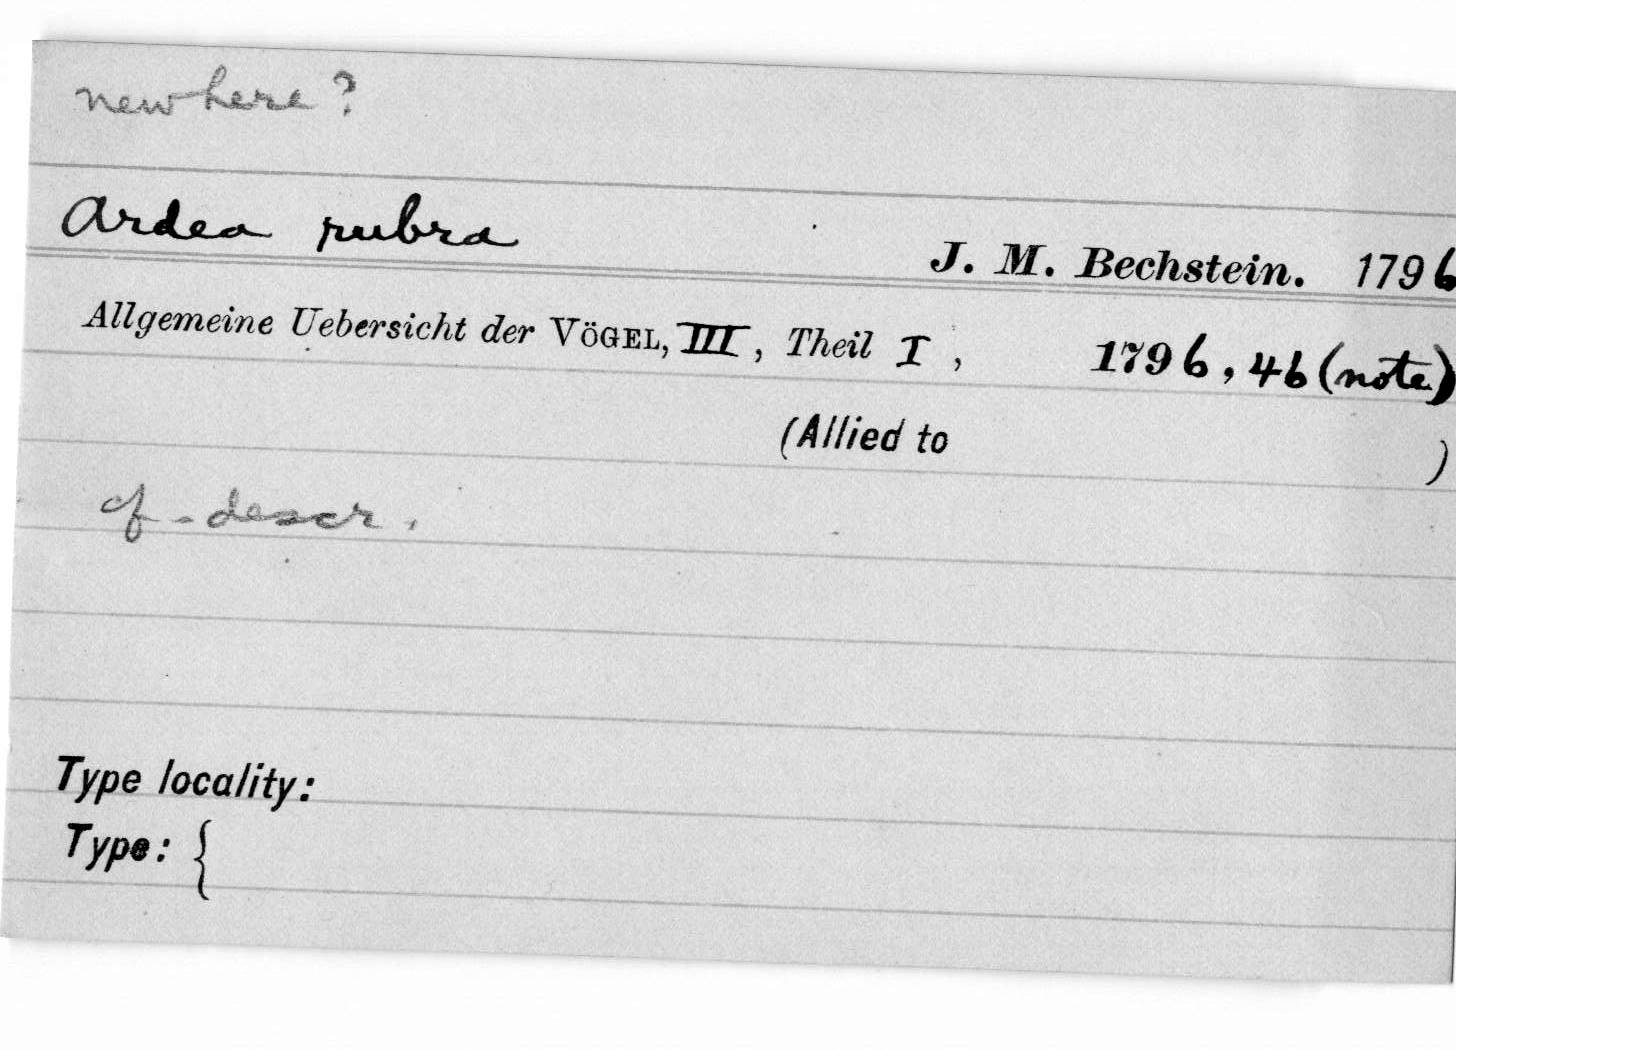 new here?
Ardea rubra
J. M. Bechstein. 1796
Allgemeine Uebersicht der VÖGEL, III, Theil I, 1796, 46 (note)
(Allied to )
cf. descr.
Type locality:
Type: {